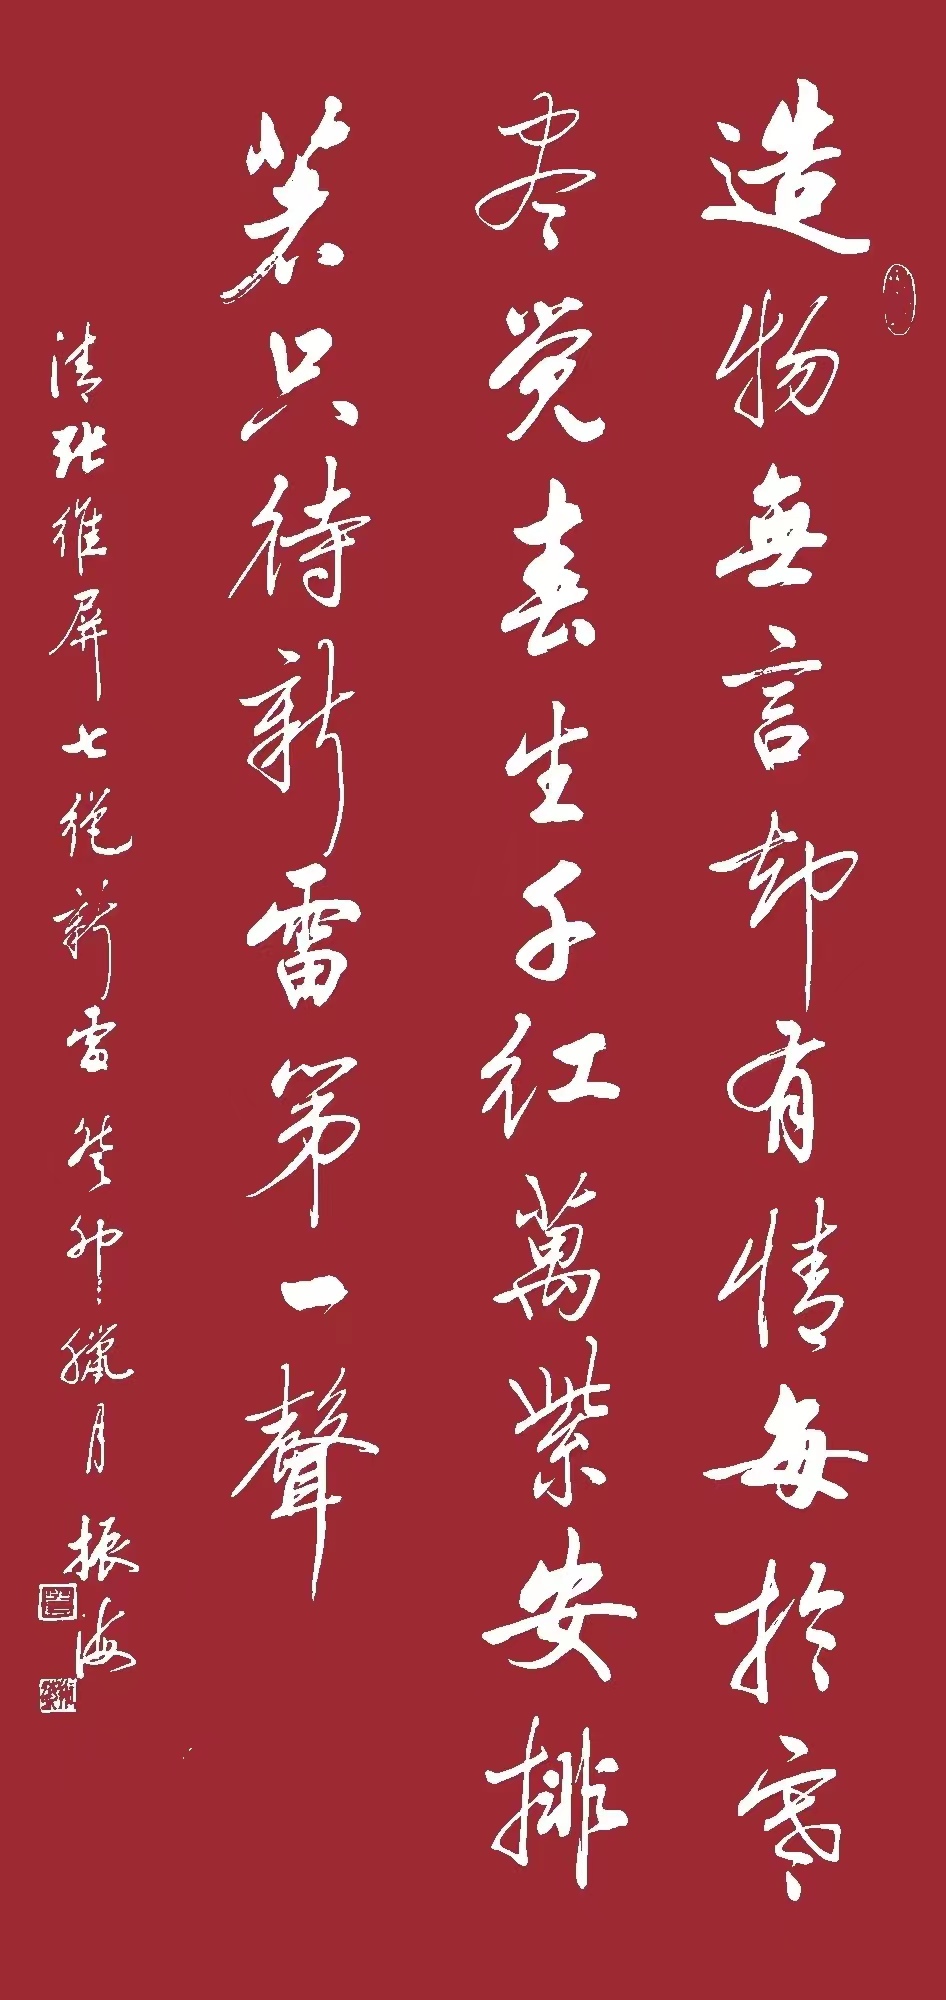 造物無言却有情每於寒
尽觉春生千红萬紫安排
著只待新雷第一聲
清张維屏七绝新雷 癸卯腊月 振海